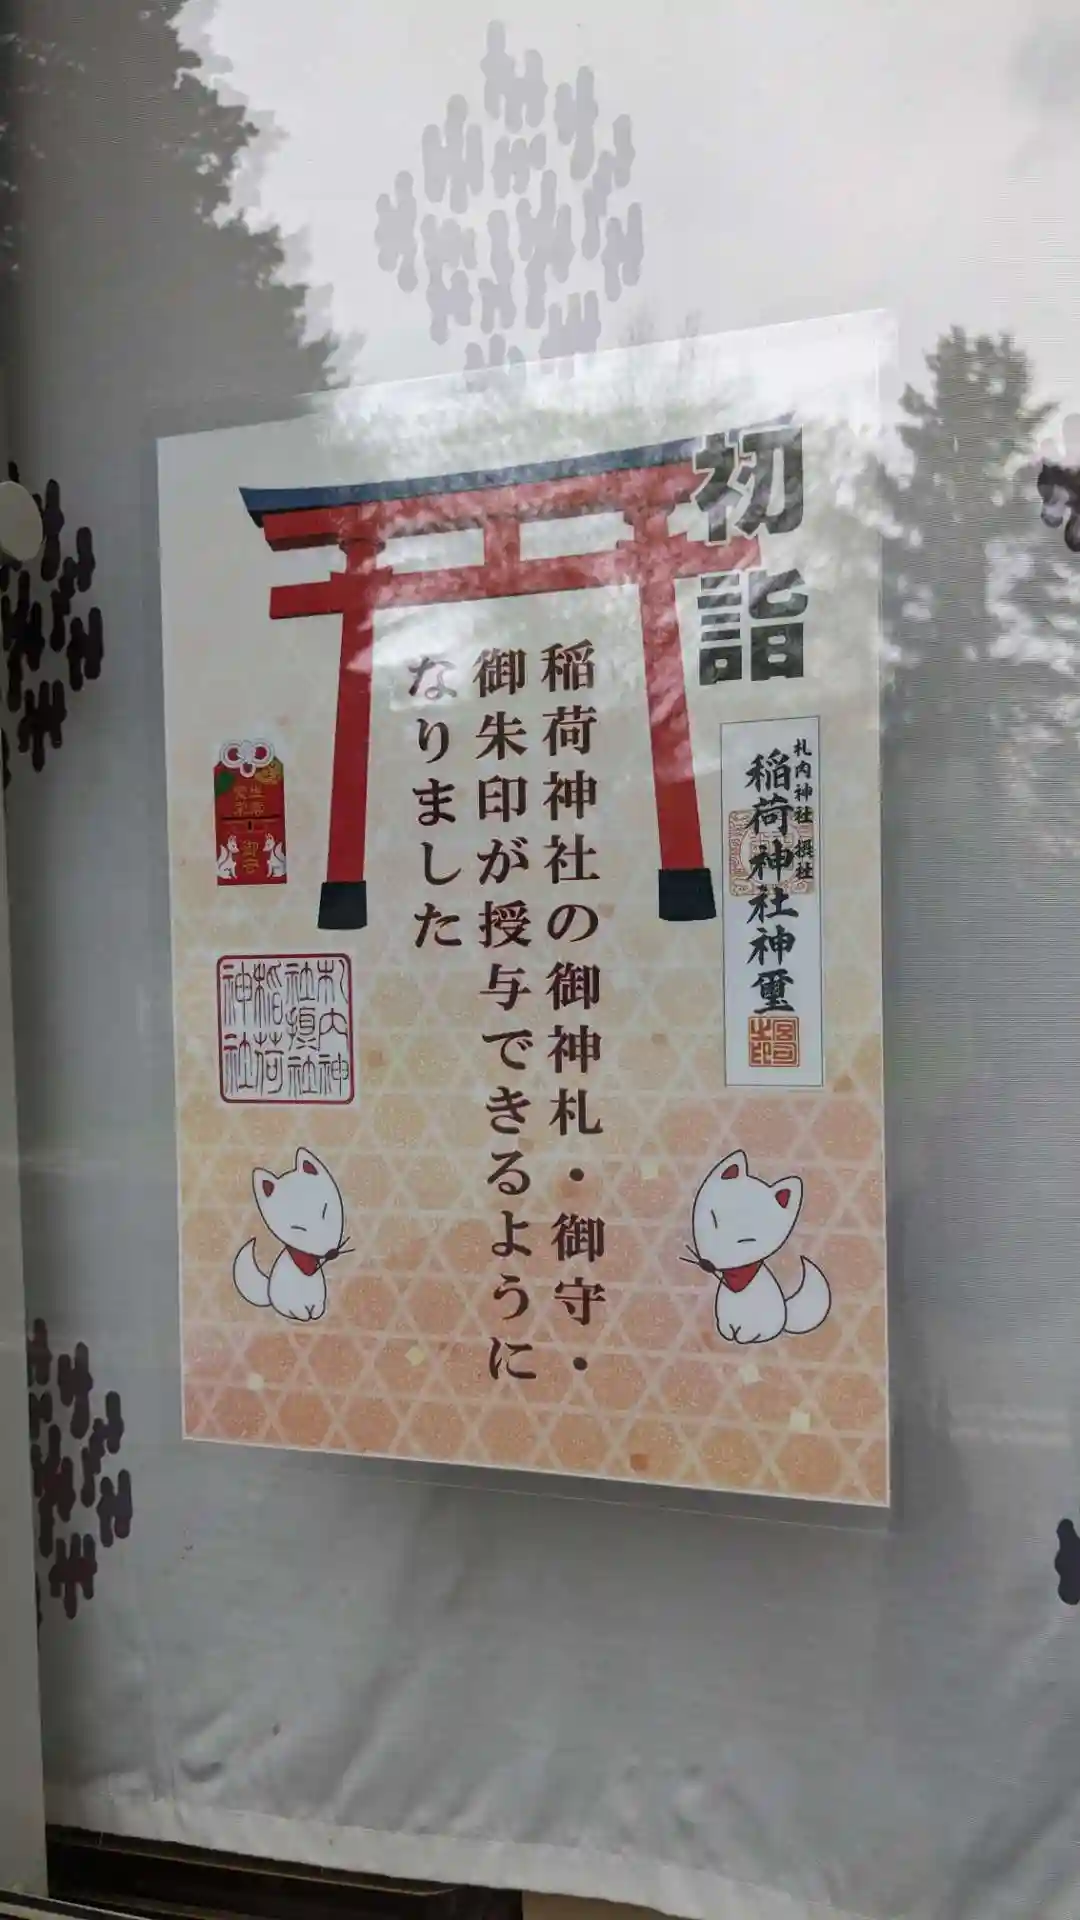 初詣
稲荷神社の御神札・御守・
御朱印が授与できるように
なりました
札内神社 摂社
稲荷神社神璽
御守
札内神
社摂社
稲荷
神社